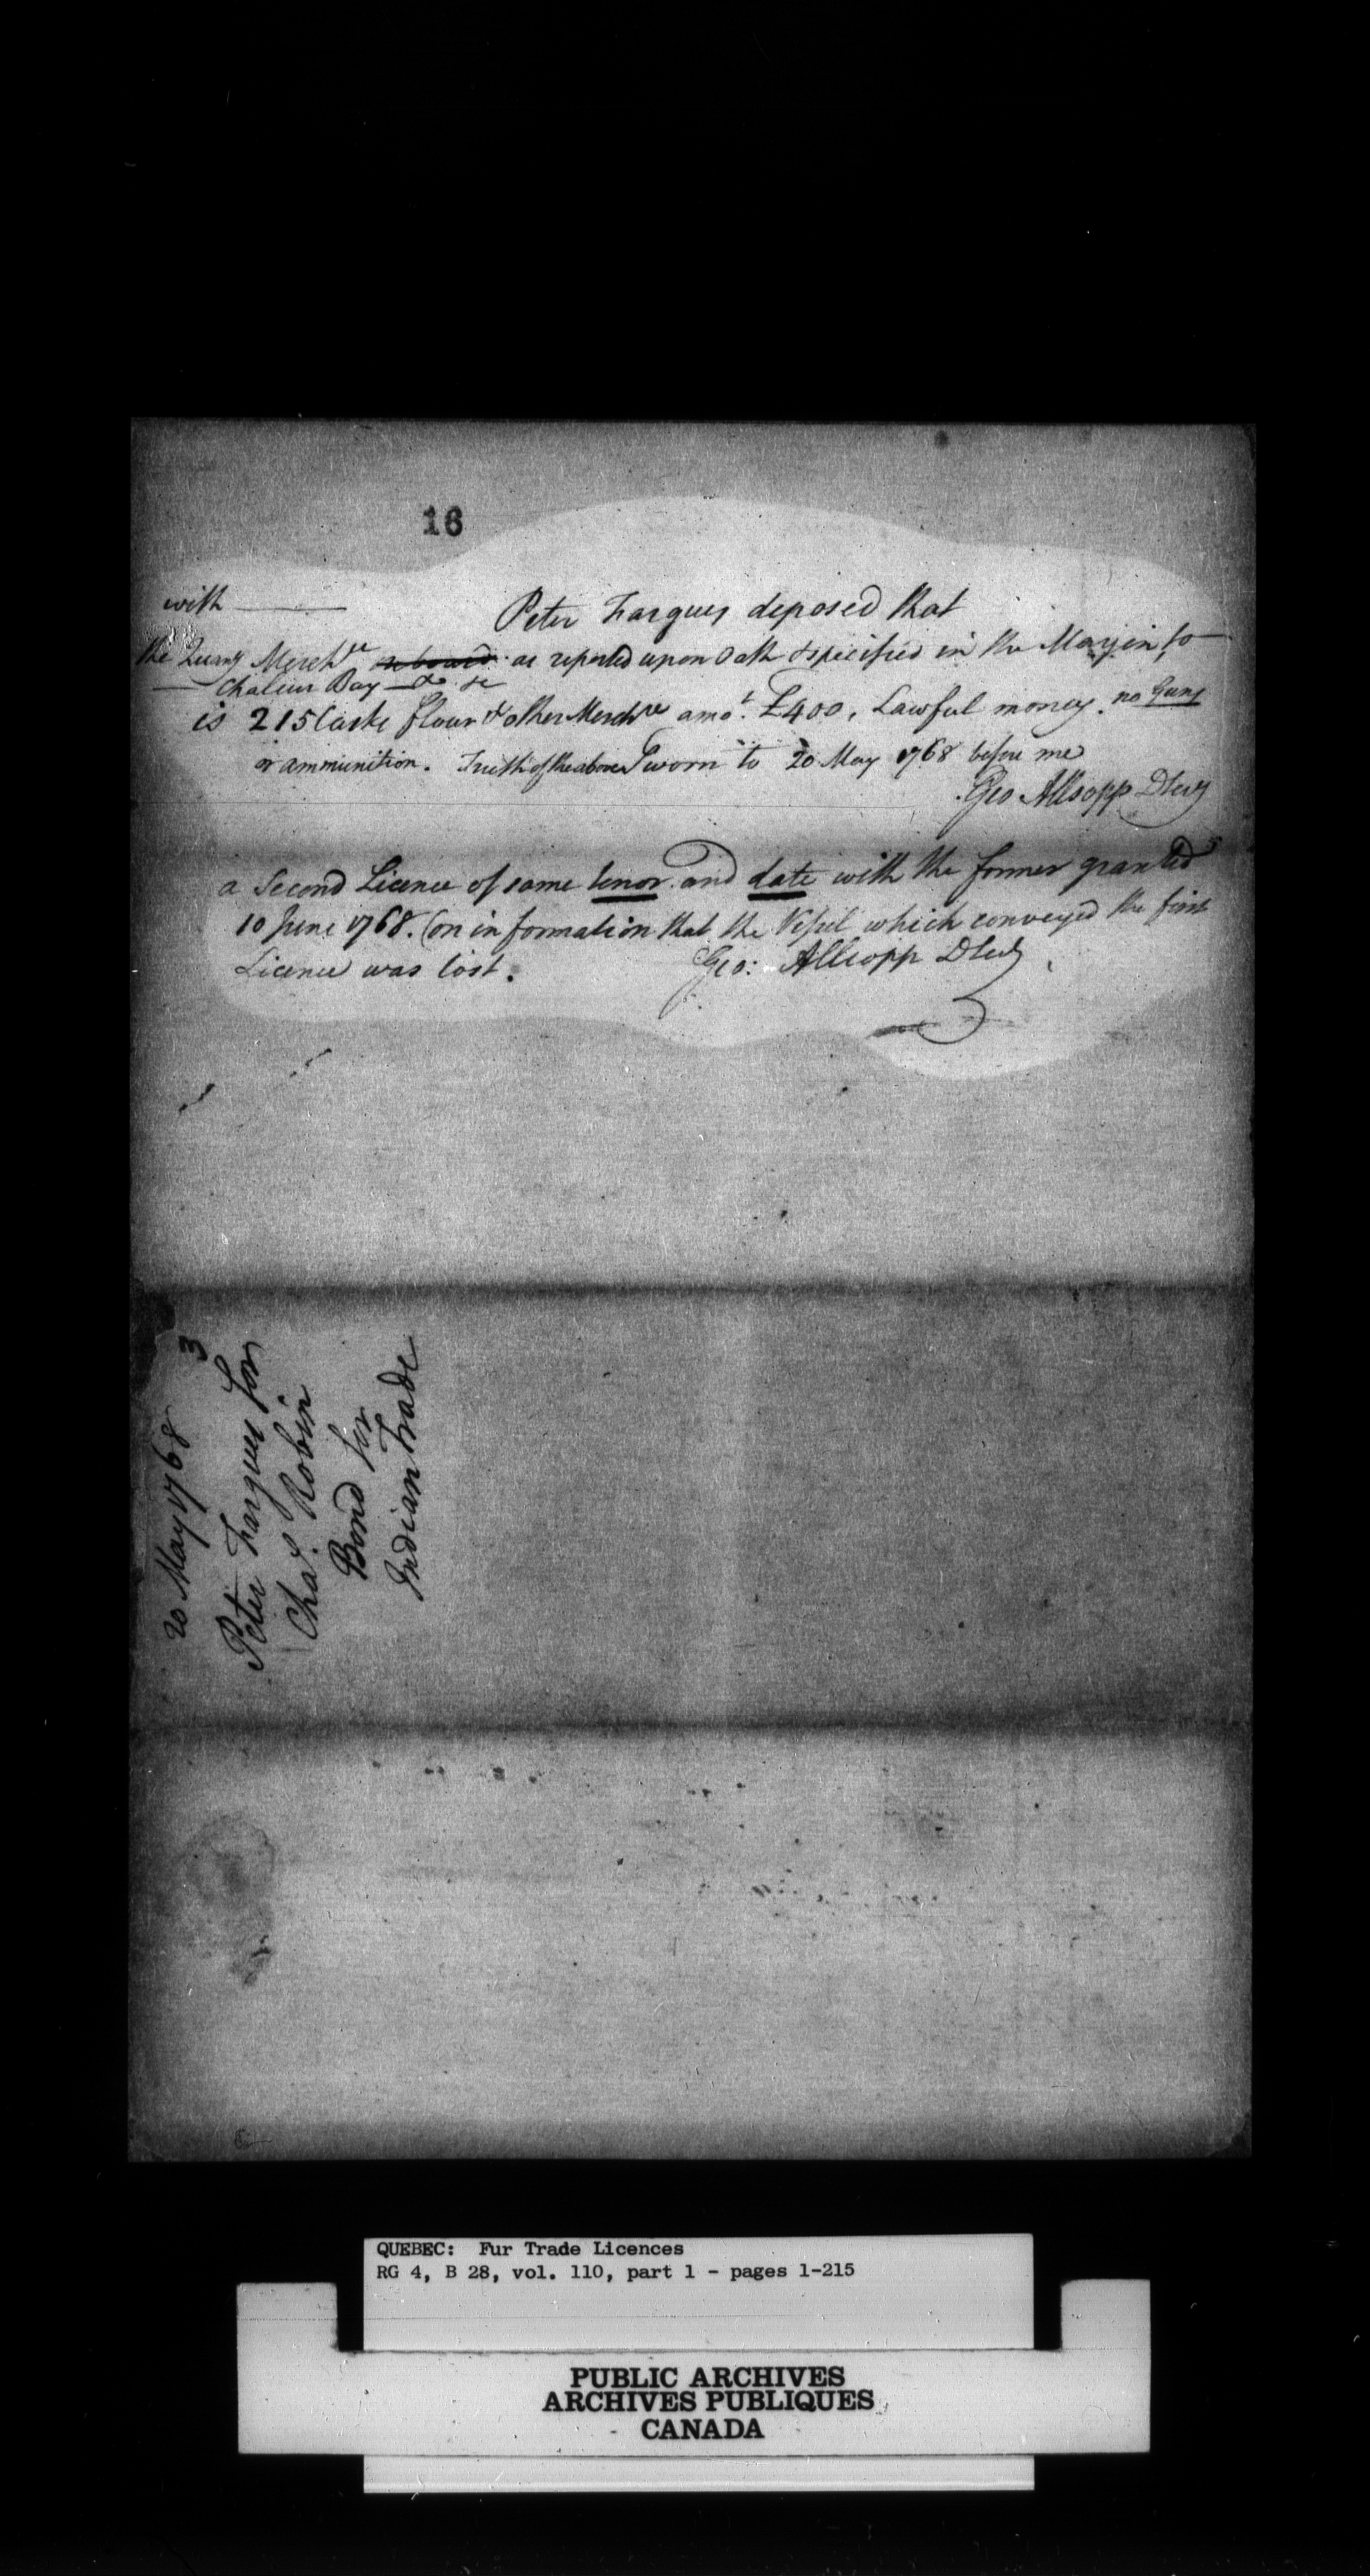 16
with
Peter Fargues deposed that
the Quanty Merchze aboard as reported upon Oath & specified in the Margin to
Chaleur Bay &c
is 215 Casks flour & other Merchze amot. £400, Lawful money. no Guns
or ammunition. Truth of the above Sworn to 20 May 1768 before me
Geo Allsopp DSecy
a Second Licence of same tenor and date with the former granted
10 June 1768. (on information that the Vessel which conveyed the first
Licence was lost.
Geo: Allsopp DSecy
20 May 1768
3
Peter Fargues for
Chas. Robin
Bond for
Indian Trade
QUEBEC: Fur Trade Licences
RG 4, B 28, vol. 110, part 1 - pages 1-215
PUBLIC ARCHIVES
ARCHIVES PUBLIQUES
CANADA